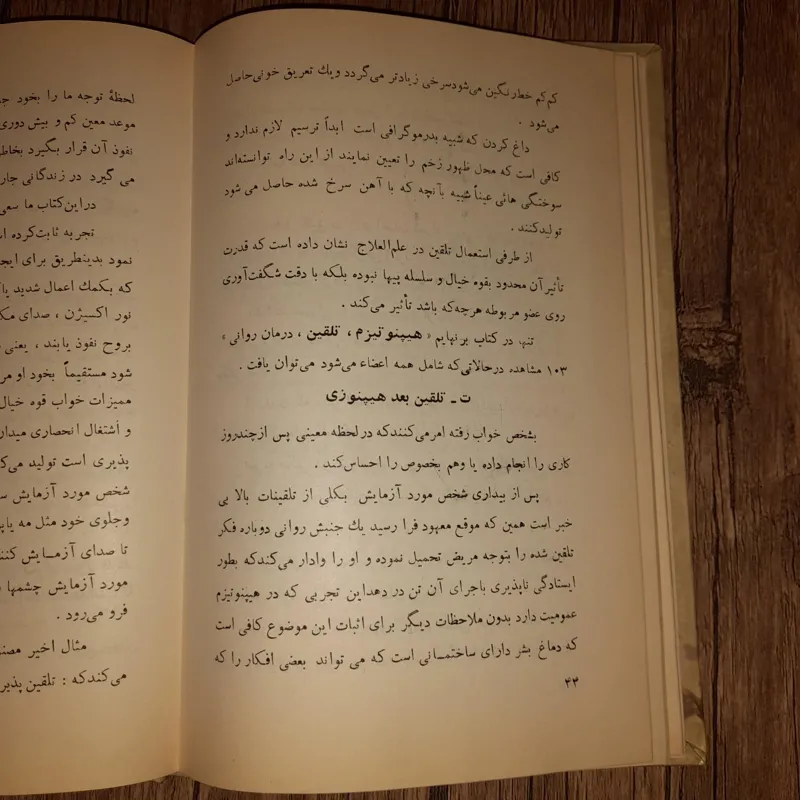 کم کم خط رنگین می‌شود سرخی زیادتر می‌گردد و یك تعریق خونی حاصل
می‌شود .
داغ کردن که شبیه بدرموگرافی است ابداً ترسیم لازم ندارد و
کافی است که محل ظهور زخم را تعیین نمایند از این راه توانسته‌اند
سوختگی هائی عیناً شبیه بآنچه که با آهن سرخ شده حاصل می شود
تولیدکنند .
از طرفی استعمال تلقین در علم‌العلاج نشان داده است که قدرت
تأثیر آن محدود بقوه خیال و سلسله پیها نبوده بلکه با دقت شگفت‌آوری
روی عضو مربوطه هرچه‌که باشد تأثیر می‌کند .
تنها در کتاب برنهایم « هیپنوتیزم ، تلقین ، درمان روانی »
۱۰۳ مشاهده درحالاتی‌که شامل همه اعضاء می‌شود می‌توان یافت .
ت ـ تلقین بعد هیپنوزی
بشخص خواب رفته امرمی‌کنندکه در لحظه معینی پس ازچندروز
کاری را انجام داده یا وهم بخصوص را احساس‌کند .
پس از بیداری شخص مورد آزمایش بکلی از تلقینات بالا بی
خبر است همین که موقع معهود فرا رسید یك جنبش روانی دوباره فکر
تلقین شده را بتوجه مریض تحمیل نموده و او را وادار می‌کندکه بطور
ایستادگی ناپذیری باجرای آن تن در دهداین تجربی که در هیپنوتیزم
عمومیت دارد بدون ملاحظات دیگر برای اثبات این موضوع کافی است
که دماغ بشر دارای ساختمـانی است که می تواند بعضی افکار را که
۴۳
لحظۀ توجه ما را بخود
موعد معین کم و بیش دوری
نفوذ آن قرار بگیرد
می گیرد در زندگانی
دراین‌کتاب ما سعی
تجربه ثابت‌کرده
نمود بدینطریق برای
که بکمك اعمال شدید
نور اکسیژن ، صدای
بروح نفوذ یابند ، یعنی
شود مستقیماً بخود او
ممیزات خواب قوه خیال
و اشتغال انحصاری
پذیری است تولید
شخص مورد آزمایش
وجلوی خود مثل مه
تا صدای آزمـایش
مورد آزمایش چشمها
فرو می‌رود .
مثال اخیر
می‌کندکه : تلقین